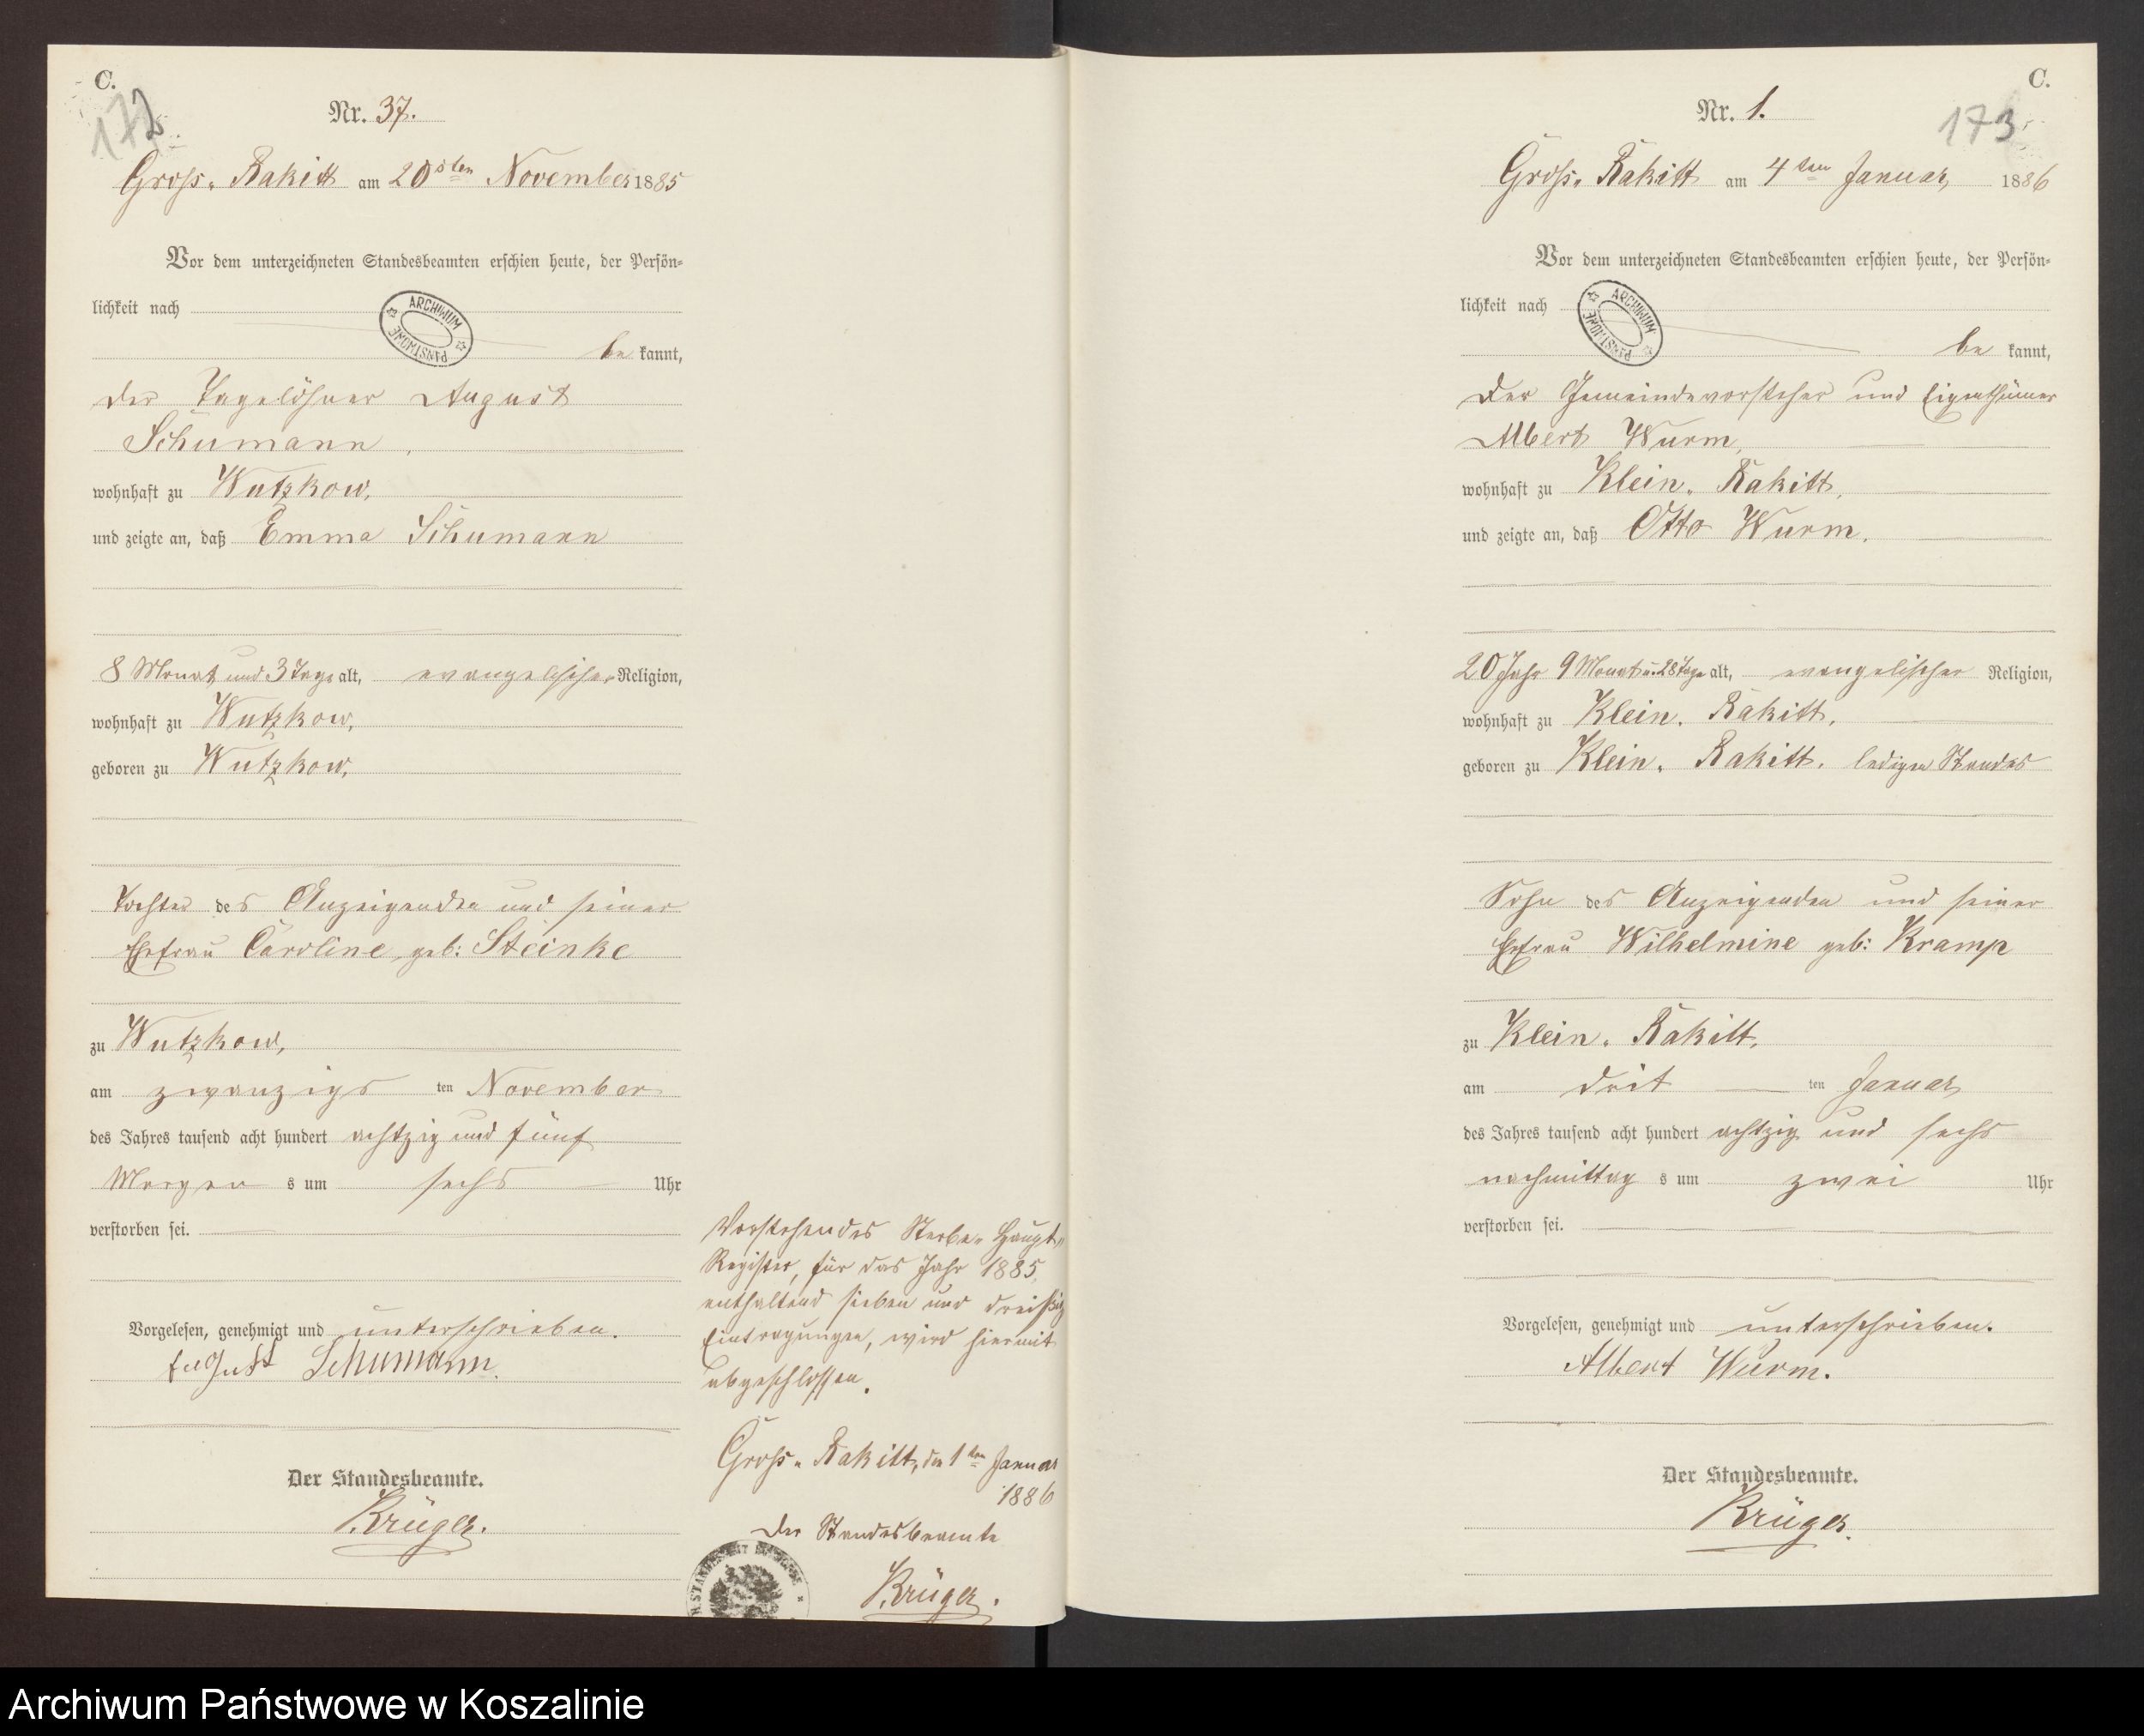 C.
172
Nr. 37.
Gross-Rakitt am 20sten November 1885
Vor dem unterzeichneten Standesbeamten erschien heute, der Persön-
lichkeit nach
ARCHIWUM PAŃSTWOWE
be kannt,
der Tagelöhner August
Schumann,
wohnhaft zu Wutzkow,
und zeigte an, daß Emma Schumann
8 Monat und 3 Tage alt, evangelischer Religion,
wohnhaft zu Wutzkow,
geboren zu Wutzkow,
Tochter des Anzeigenden und seiner
Ehefrau Caroline geb: Steinke
zu Wutzkow,
am zwanzigs ten November
des Jahres tausend acht hundert achtzig und fünf
Morgen s um sechs Uhr
verstorben sei.
Vorgelesen, genehmigt und unterschrieben.
August Schumann.
Der Standesbeamte.
Krüger.
Vorstehendes Sterbe-Haupt-
Register, für das Jahr 1885,
enthaltend sieben und dreißig
Eintragungen, wird hiermit
abgeschlossen.
Gross-Rakitt, den 1ten Januar
1886
Der Standesbeamte
Krüger.
C.
173
Nr. 1.
Gross-Rakitt am 4ten Januar 1886
Vor dem unterzeichneten Standesbeamten erschien heute, der Persön-
lichkeit nach
ARCHIWUM PAŃSTWOWE
be kannt,
Der Gemeindevorsteher und Eigenthümer
Albert Wurm,
wohnhaft zu Klein-Rakitt,
und zeigte an, daß Otto Wurm.
20 Jahr 9 Monat u. 28 Tage alt, evangelischer Religion,
wohnhaft zu Klein-Rakitt,
geboren zu Klein-Rakitt. ledigen Standes
Sohn des Anzeigenden und seiner
Ehefrau Wilhelmine geb: Kramp
zu Klein-Rakitt.
am drit ten Januar
des Jahres tausend acht hundert achtzig und sechs
nachmittag s um zwei Uhr
verstorben sei.
Vorgelesen, genehmigt und unterschrieben.
Albert Wurm.
Der Standesbeamte.
Krüger.
Archiwum Państwowe w Koszalinie